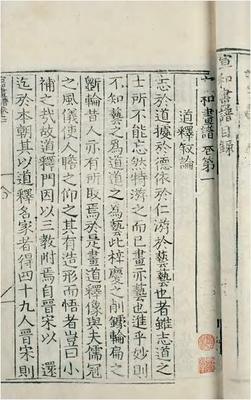 宣和畫譜目錄
宣和畫譜卷第一
道釋叙論
志於道據於德依於仁游於藝藝也者雖志道之
士所不能忘然特游之而已畫亦藝也進乎妙則
不知藝之爲道道之爲藝此梓慶之削鐻輪扁之
斲輪昔人亦有所取焉於是畫道釋像與夫儒冠
之風儀使人瞻之仰之其有造形而悟者豈曰小
補之哉故道釋門因以三教附焉自晉宋以還
迄於本朝其以道釋名家者得四十九人晉宋則